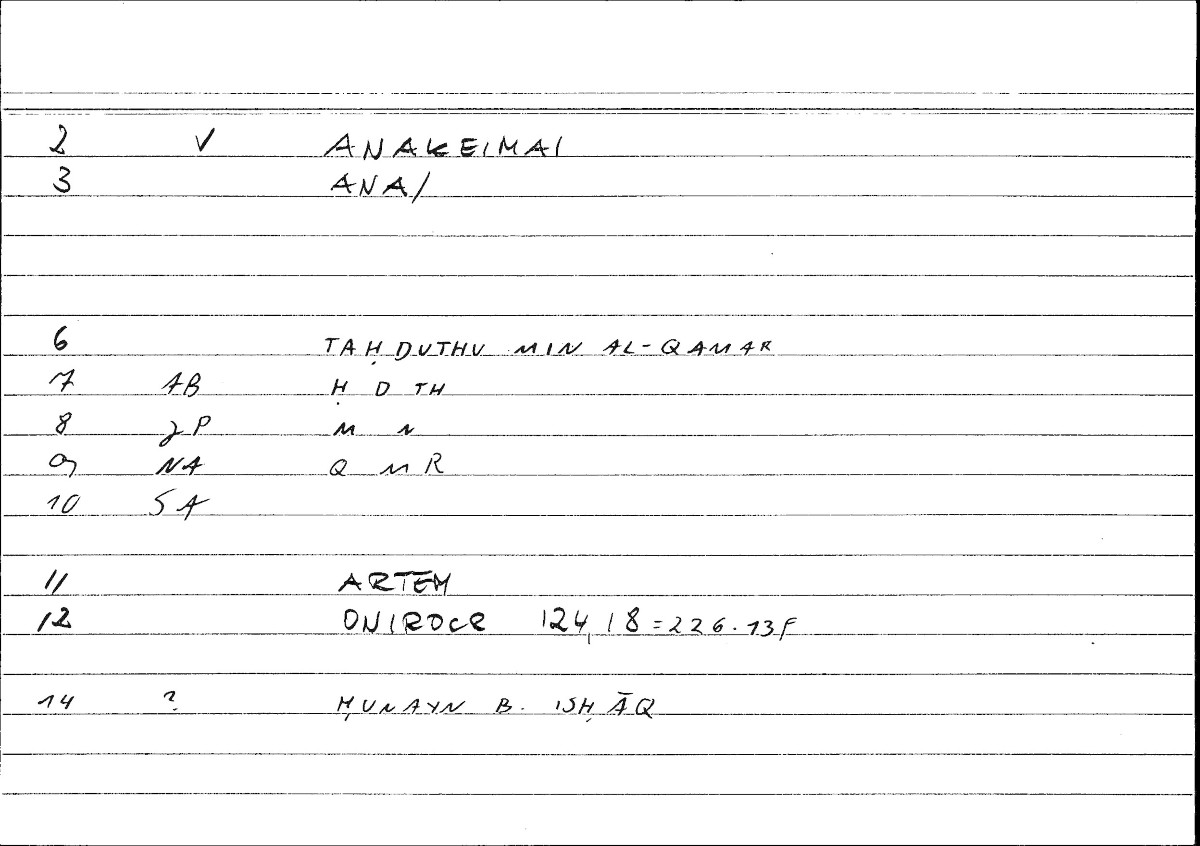 2 V ANAKEIMAI
3 ANA/
6 TAḤDUTHU MIN AL-QAMAR
7 AB Ḥ D TH
8 JP M N
9 NA Q M R
10 SA
11 ARTEM
12 ONIROCR 124,18=226.13F
14 ? ḤUNAYN B. ISḤĀQ